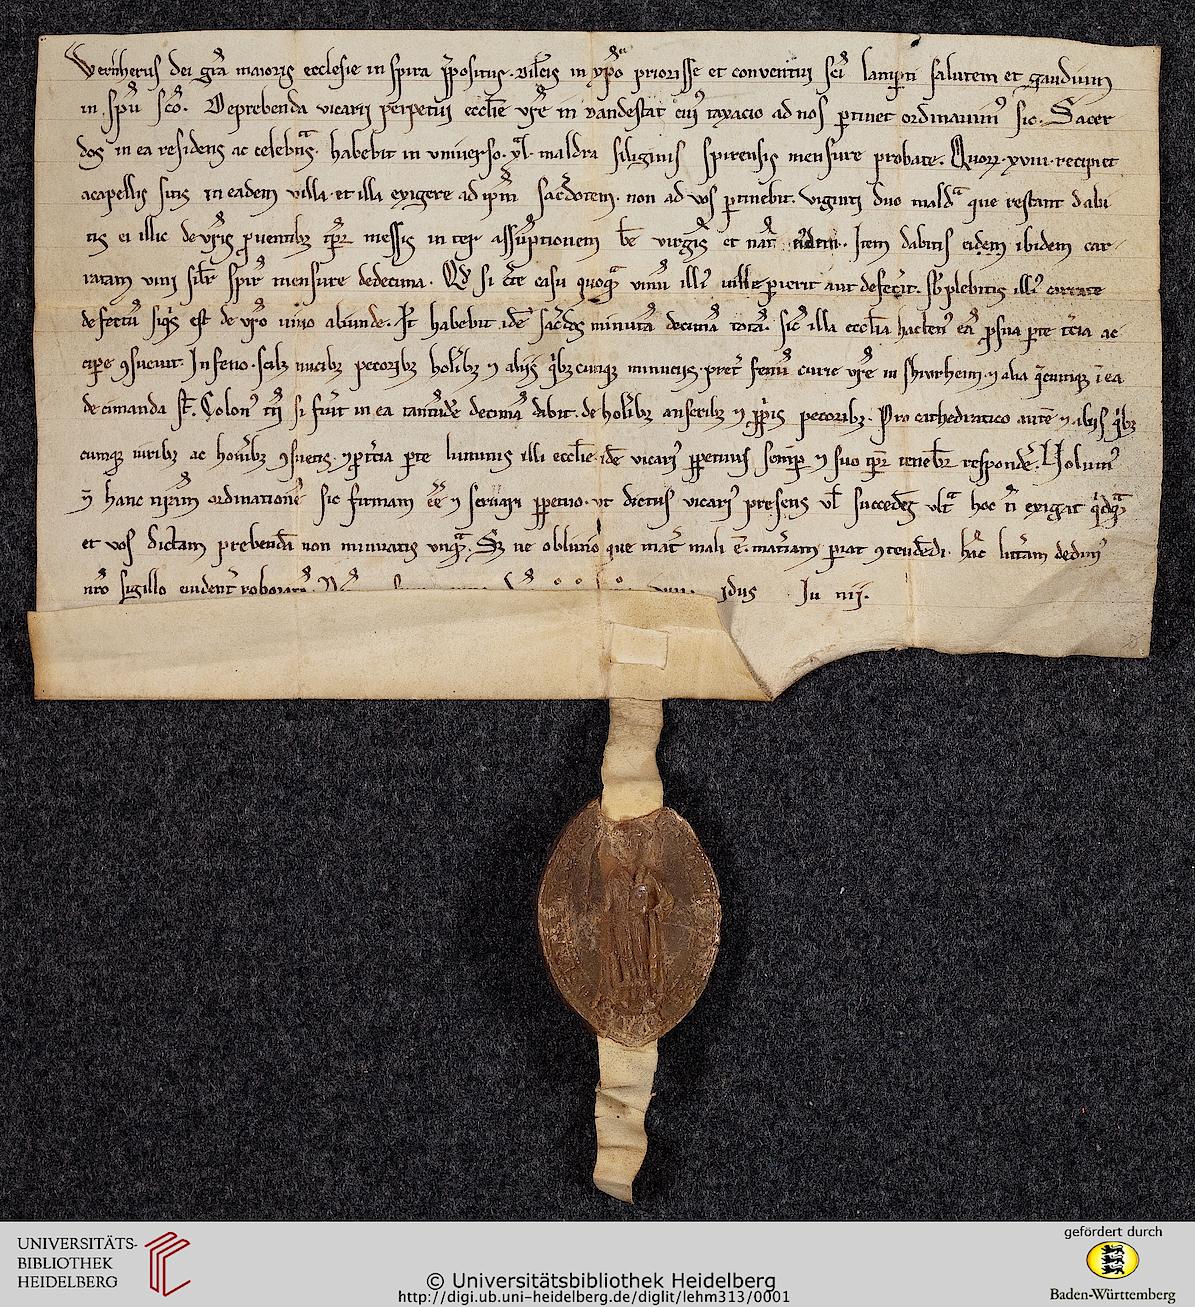 Wernherus dei gr̄a maioris ecclesie in spira p̄positus. dil̄cis in xp̄o priorisse et conventui sc̄i lamp̄ti salutem et gaudium
in sp̄u sc̄o. De prebenda vicarii perpetui eccl̄ie vr̄e in vandestat cui' taxacio ad nos p̄tinet ordinavim' sic. Sacer
dos in ea residens ac celebr̄ns. habebit in universo. xl. maldra siliginis spirensis mensure probate. Quor̄. xviii. recipiet
a capellis sitis in eadem villa. et illa exigere ad ip̄m sac̄dotem. non ad vos p̄tinebit. viginti duo mald̄a que restant dabi
tis ei illic de vr̄is p̄ventib; tp̄r messis int̄ ass̄uptionem b̄e virgis̄ et nat̄ eiusdem. Item dabitis eidem ibidem car
ratam vini sil̄r spir̄ mensure de decima. Qd si casu quoq̄ vinū illi' ville pierit aut defec̄it. supplebitis illi' carrate
defectū siq's est de vr̄o vino abunde. It̄ habebit id̄e sac̄dos minutā decimā totā. sic' illa eccl̄ia hacten' eā p̄ sua p̄te t̄cia ac
cipe 9suevit. In feno. scilz nucib; pecorib; hol̄ib; ⁊ aliis q'b;cumq; minuciis. pret̄ fenū curie vr̄e in ⁊ alia q̄cumq; ī ea
decimanda st̄. Colon' tn̄ si fu'it in ea tantūdē decimā dabit. de hol̄ib; anserib; ⁊ pp̄is pecorib;. Pro cathedratico autē ⁊ aliis q'b;
cumq; iurib; ac hon̄ib; 9suetis. ⁊ p̄ t̄cia p̄te luminis illi eccl̄ie id̄e vicari' pp̄etuus semp ⁊ suo tp̄r teneb̄r respondē. Volum'
n̄ hanc nr̄am ordinationē sic firmam ēe ⁊ servari pp̄etuo. ut dictus vicari' presens vl̄ succedēs ult̄ hoc n̄ exigat q'dq̄
et vos dictam prebendā non minuatis unq̄. Sz ne oblivio que mat̄ mali ē. mat̄iam p̄iat 9tendēdi. hāc litt̄am dedim'
nr̄o sigillo evident̄ roboratā. idus Iu nii.
UNIVERSITÄTS-
BIBLIOTHEK
HEIDELBERG
© Universitätsbibliothek Heidelberg
http://digi.ub.uni-heidelberg.de/diglit/lehm313/0001
gefördert durch
Baden-Württemberg